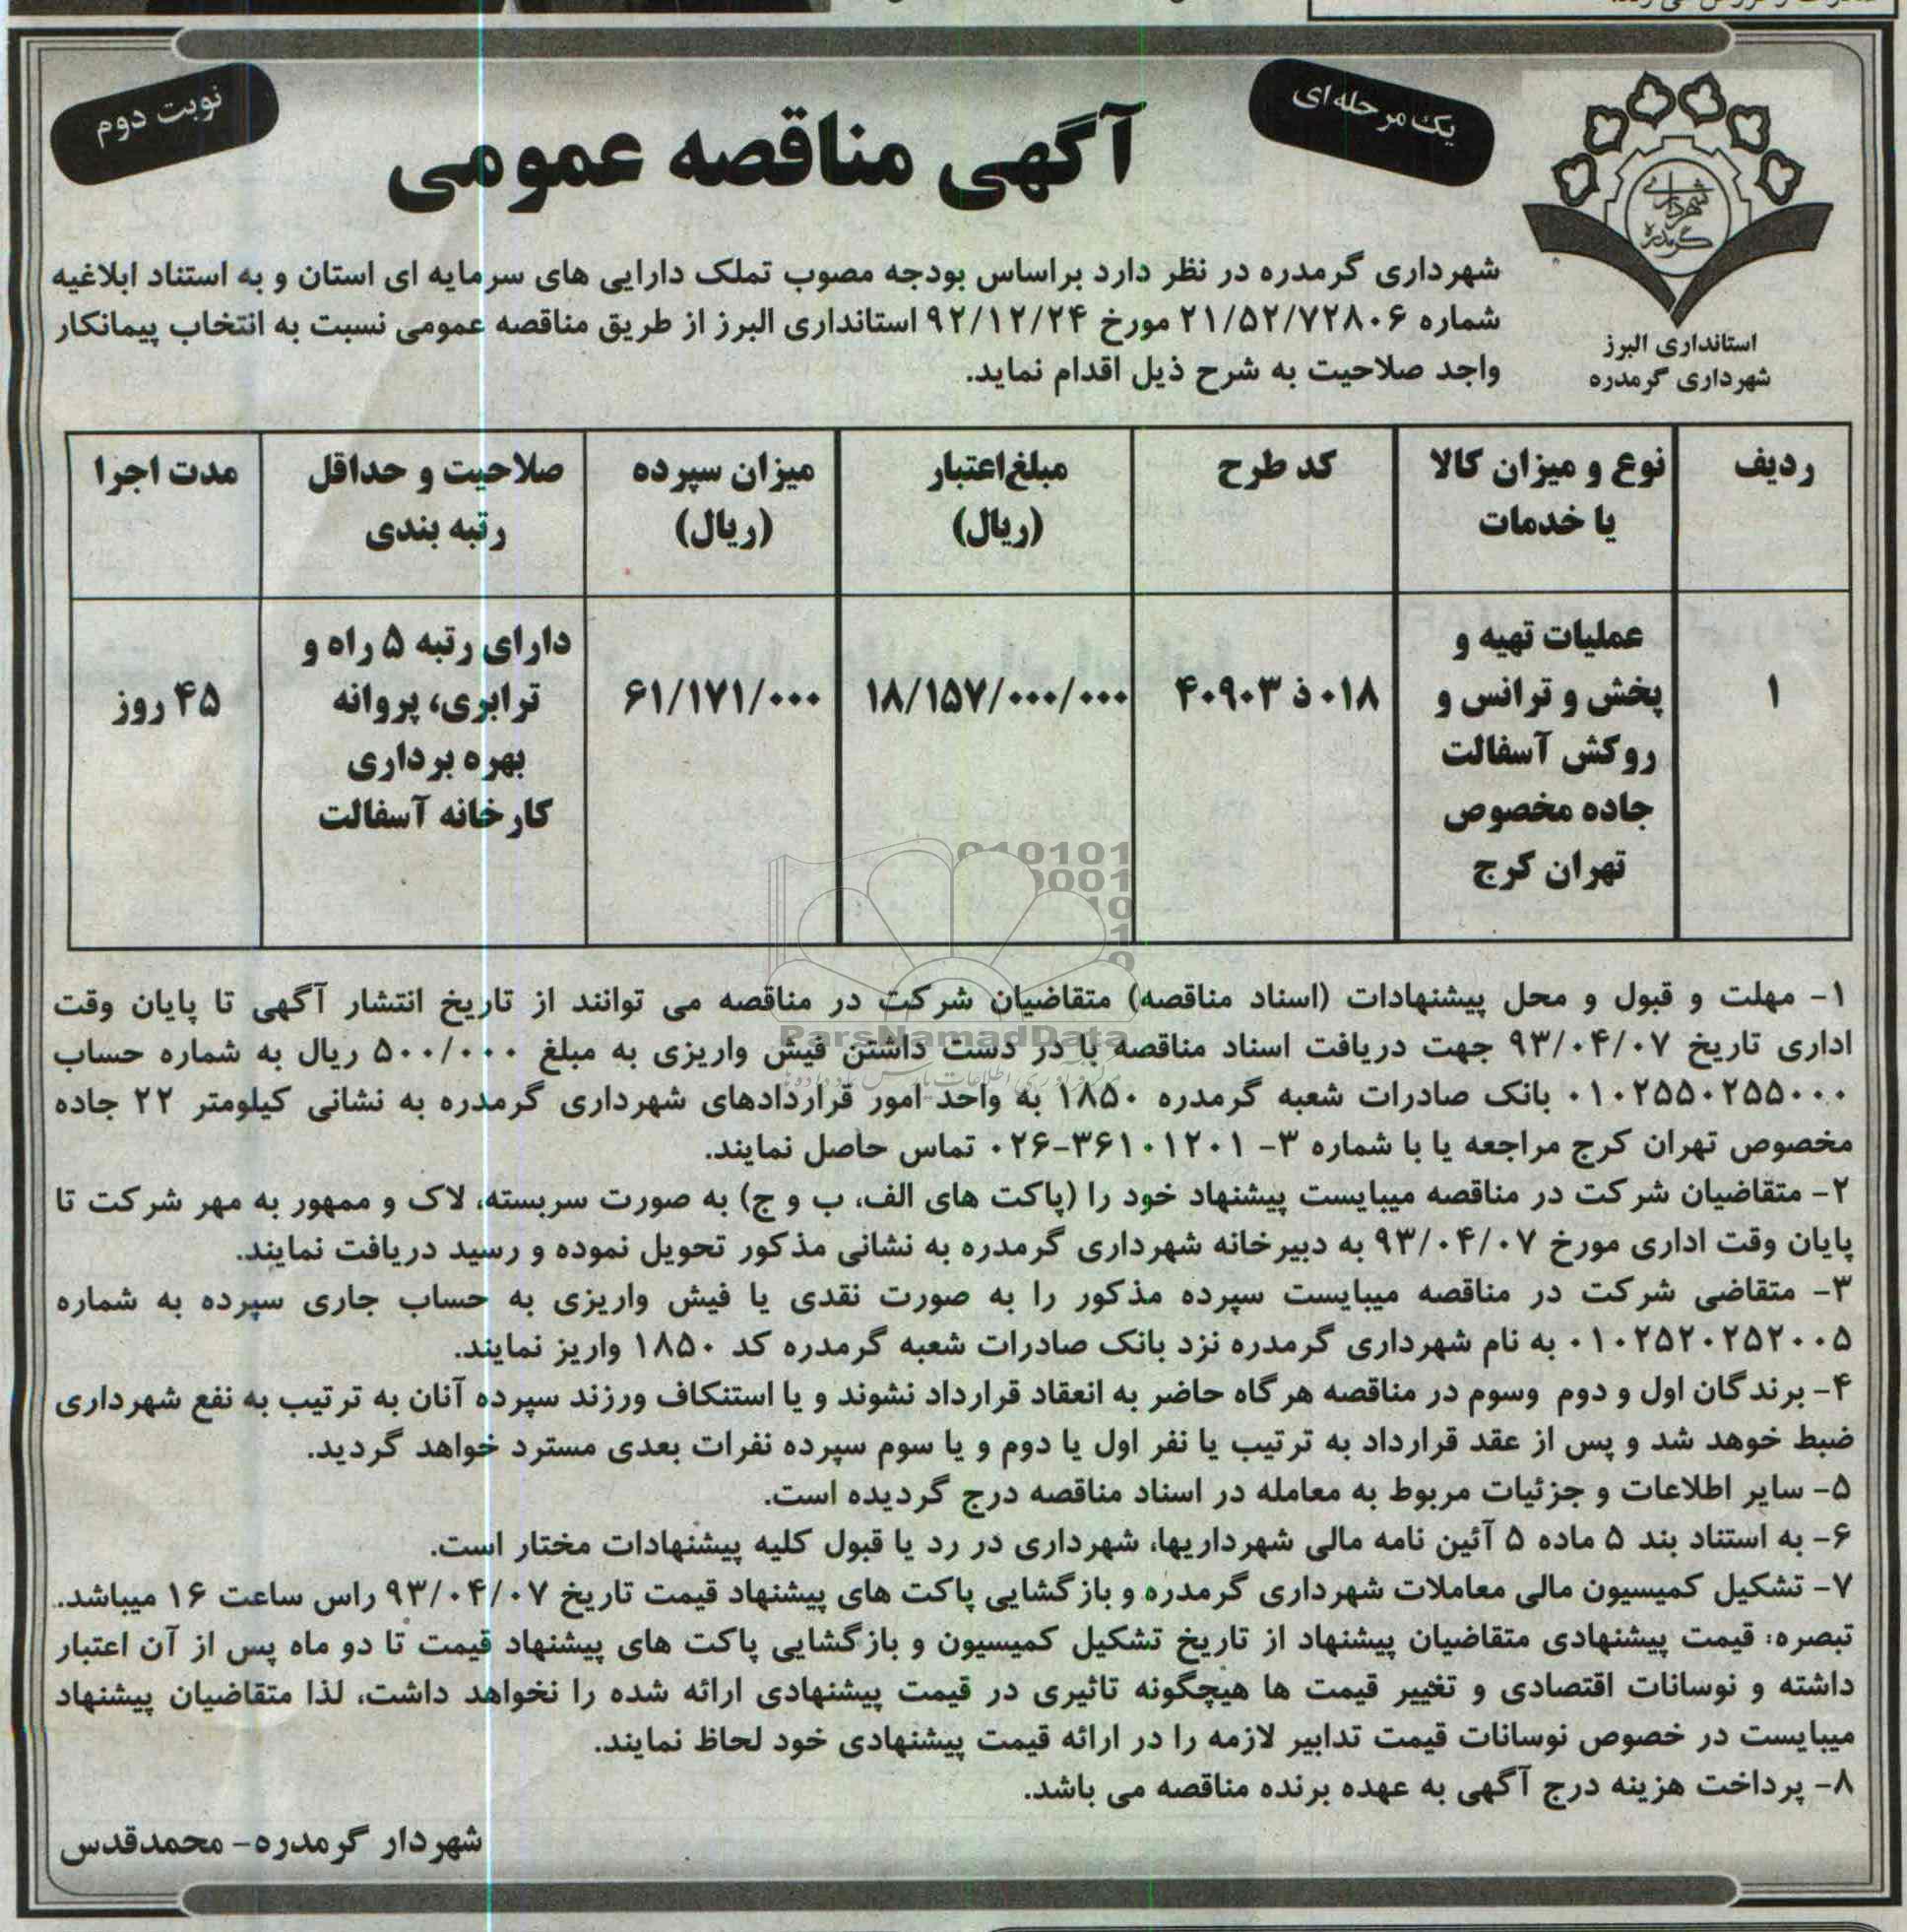 یک مرحله ای
نوبت دوم
آگهی مناقصه عمومی
شهرداری گرمدره
استانداری البرز
شهرداری گرمدره
شهرداری گرمدره در نظر دارد براساس بودجه مصوب تملک دارایی های سرمایه ای استان و به استناد ابلاغیه
شماره ۲۱/۵۲/۷۲۸۰۶ مورخ ۹۲/۱۲/۲۴ استانداری البرز از طریق مناقصه عمومی نسبت به انتخاب پیمانکار
واجد صلاحیت به شرح ذیل اقدام نماید.
ردیف
نوع و میزان کالا
یا خدمات
کد طرح
مبلغ اعتبار
(ریال)
میزان سپرده
(ریال)
صلاحیت و حداقل
رتبه بندی
مدت اجرا
۱
عملیات تهیه و
پخش و ترانس و
روکش آسفالت
جاده مخصوص
تهران کرج
۰۱۸ذ۴۰۹۰۳
۱۸/۱۵۷/۰۰۰/۰۰۰
۶۱/۱۷۱/۰۰۰
دارای رتبه ۵ راه و
ترابری، پروانه
بهره برداری
کارخانه آسفالت
۴۵ روز
۱- مهلت و قبول و محل پیشنهادات (اسناد مناقصه) متقاضیان شرکت در مناقصه می توانند از تاریخ انتشار آگهی تا پایان وقت
اداری تاریخ ۹۳/۰۴/۰۷ جهت دریافت اسناد مناقصه با در دست داشتن فیش واریزی به مبلغ ۵۰۰/۰۰۰ ریال به شماره حساب
۰۱۰۲۵۵۰۲۵۵۰۰۰ بانک صادرات شعبه گرمدره ۱۸۵۰ به واحد امور قراردادهای شهرداری گرمدره به نشانی کیلومتر ۲۲ جاده
مخصوص تهران کرج مراجعه یا با شماره ۳- ۳۶۱۰۱۲۰۱-۰۲۶ تماس حاصل نمایند.
۲- متقاضیان شرکت در مناقصه میبایست پیشنهاد خود را (پاکت های الف، ب و ج) به صورت سربسته، لاک و ممهور به مهر شرکت تا
پایان وقت اداری مورخ ۹۳/۰۴/۰۷ به دبیرخانه شهرداری گرمدره به نشانی مذکور تحویل نموده و رسید دریافت نمایند.
۳- متقاضی شرکت در مناقصه میبایست سپرده مذکور را به صورت نقدی یا فیش واریزی به حساب جاری سپرده به شماره
۰۱۰۲۵۲۰۲۵۲۰۰۵ به نام شهرداری گرمدره نزد بانک صادرات شعبه گرمدره کد ۱۸۵۰ واریز نمایند.
۴- برندگان اول و دوم وسوم در مناقصه هرگاه حاضر به انعقاد قرارداد نشوند و یا استنکاف ورزند سپرده آنان به ترتیب به نفع شهرداری
ضبط خوهد شد و پس از عقد قرارداد به ترتیب یا نفر اول یا دوم و یا سوم سپرده نفرات بعدی مسترد خواهد گردید.
۵- سایر اطلاعات و جزئیات مربوط به معامله در اسناد مناقصه درج گردیده است.
۶- به استناد بند ۵ ماده ۵ آئین نامه مالی شهرداریها، شهرداری در رد یا قبول کلیه پیشنهادات مختار است.
۷- تشکیل کمیسیون مالی معاملات شهرداری گرمدره و بازگشایی پاکت های پیشنهاد قیمت تاریخ ۹۳/۰۴/۰۷ راس ساعت ۱۶ میباشد.
تبصره: قیمت پیشنهادی متقاضیان پیشنهاد از تاریخ تشکیل کمیسیون و بازگشایی پاکت های پیشنهاد قیمت تا دو ماه پس از آن اعتبار
داشته و نوسانات اقتصادی و تغییر قیمت ها هیچگونه تاثیری در قیمت پیشنهادی ارائه شده را نخواهد داشت، لذا متقاضیان پیشنهاد
میبایست در خصوص نوسانات قیمت تدابیر لازمه را در ارائه قیمت پیشنهادی خود لحاظ نمایند.
۸- پرداخت هزینه درج آگهی به عهده برنده مناقصه می باشد.
شهردار گرمدره- محمدقدس
ParsNamadData